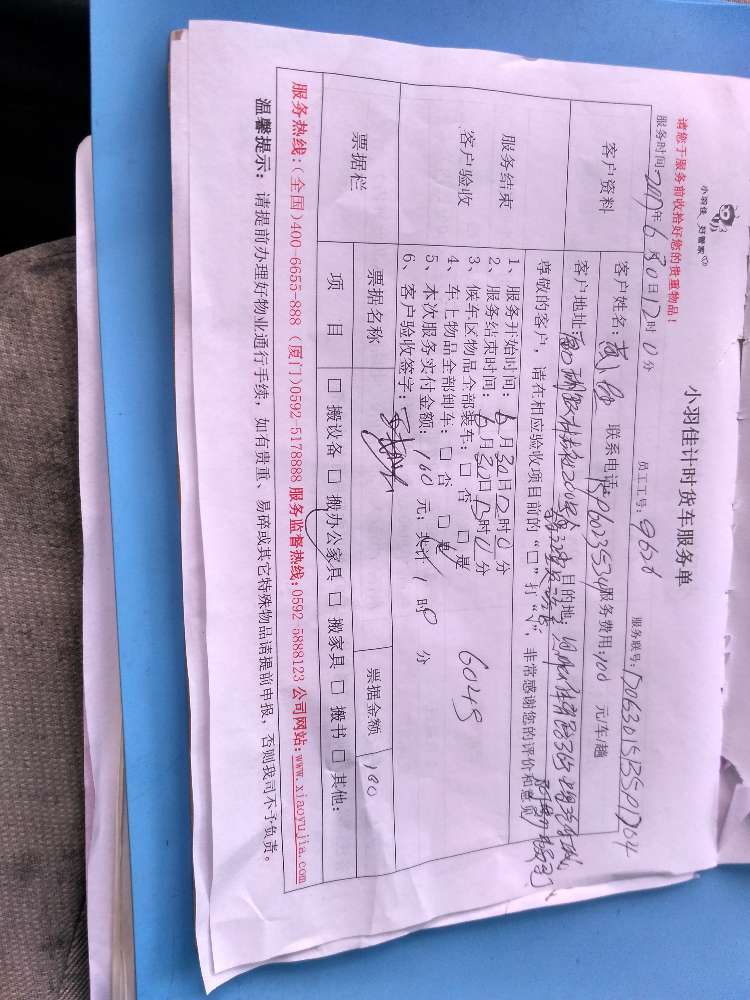 小羽佳 好管家
小羽佳计时货车服务单
请您于服务前收拾好您的贵重物品！
员工工号：9656
服务联号：
服务时间：2017年6月30日12时0分
客户资料
客户姓名：
联系电话：
服务费用：100 元/车/趟
客户地址：
目的地：
尊敬的客户，请在相应验收项目前的“□”打“√”，非常感谢您的评价和意见
服务结束
客户验收
1、服务开始时间：6月30日12时0分
2、服务结束时间：6月30日13时0分
3、候车区物品全部装车：□ 否 □ 是
4、车上物品全部卸车：□ 否 □ 是
6048
5、本次服务实付金额：160元；共计1时0分
6、客户验收签字：
票据栏
票据名称
票据金额
160
项目
□ 搬设备 □ 搬办公家具 □ 搬家具 □ 搬书 □ 其他：
服务热线：(全国)400-6655-888 (厦门)0592-5178888 服务监督热线：0592-5888123 公司网站：www.xiaoyujia.com
温馨提示：请提前办理好物业通行手续，如有贵重、易碎或其它特殊物品请提前申报，否则我司不予负责。